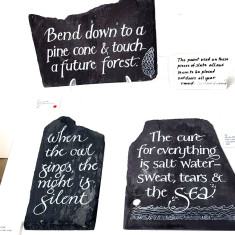 Bend down to a
pine cone & touch
a future forest.
The paint used on these
pieces of slate allows
them to be placed
outdoors all year
round
When
the owl
sings, the
night is
silent
The cure
for everything
is salt water-
sweat, tears &
the Sea